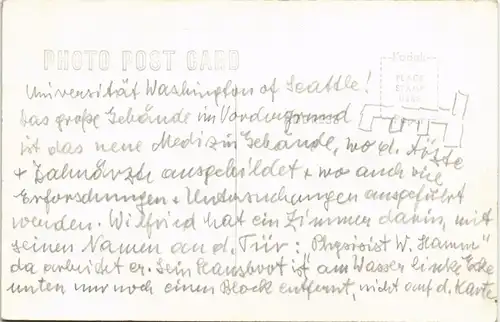 PHOTO POST CARD
Kodak
PLACE
STAMP
HERE
Universität Washington of Seattle!
Das große Gebäude im Vordergrund
ist das neue Medizin Gebäude, wo d. Ärzte
+ Zahnärzte ausgebildet + wo auch viele
Erforschungen + Untersuchungen ausgeführt
werden. Wilfried hat ein Zimmer darin, mit
seinen Namen an d. Tür: "Physisist W. Hamm"
da arbeitet er. Sein Hausboot ist am Wasser linke Ecke
unten nur noch einen Block entfernt, nicht auf d. Karte.